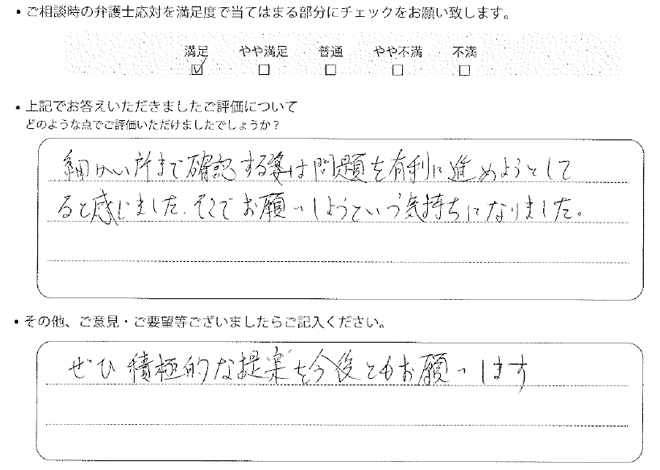 ・ご相談時の弁護士応対を満足度で当てはまる部分にチェックをお願い致します。
満足 やや満足 普通 やや不満 不満
☑ □ □ □ □
・上記でお答えいただきましたご評価について
どのような点でご評価いただけましたでしょうか？
細かい所まで確認する事は問題を有利に進めようとして
ると感じました。そこでお願いしようという気持ちになりました。
・その他、ご意見・ご要望等ございましたらご記入ください。
ぜひ積極的な提案を今後ともお願いします